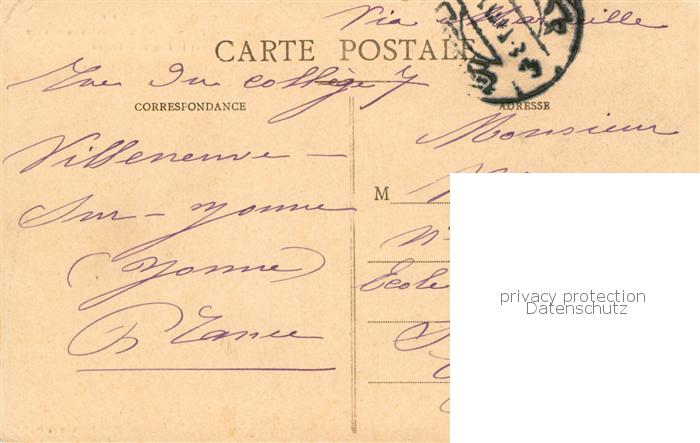 Via à Marseille
CARTE POSTALE
Rue du collège 7
CORRESPONDANCE
ADRESSE
Monsieur
Villeneuve -
M
Sur - Yonne
(Yonne)
Ecole
France
privacy protection
Datenschutz